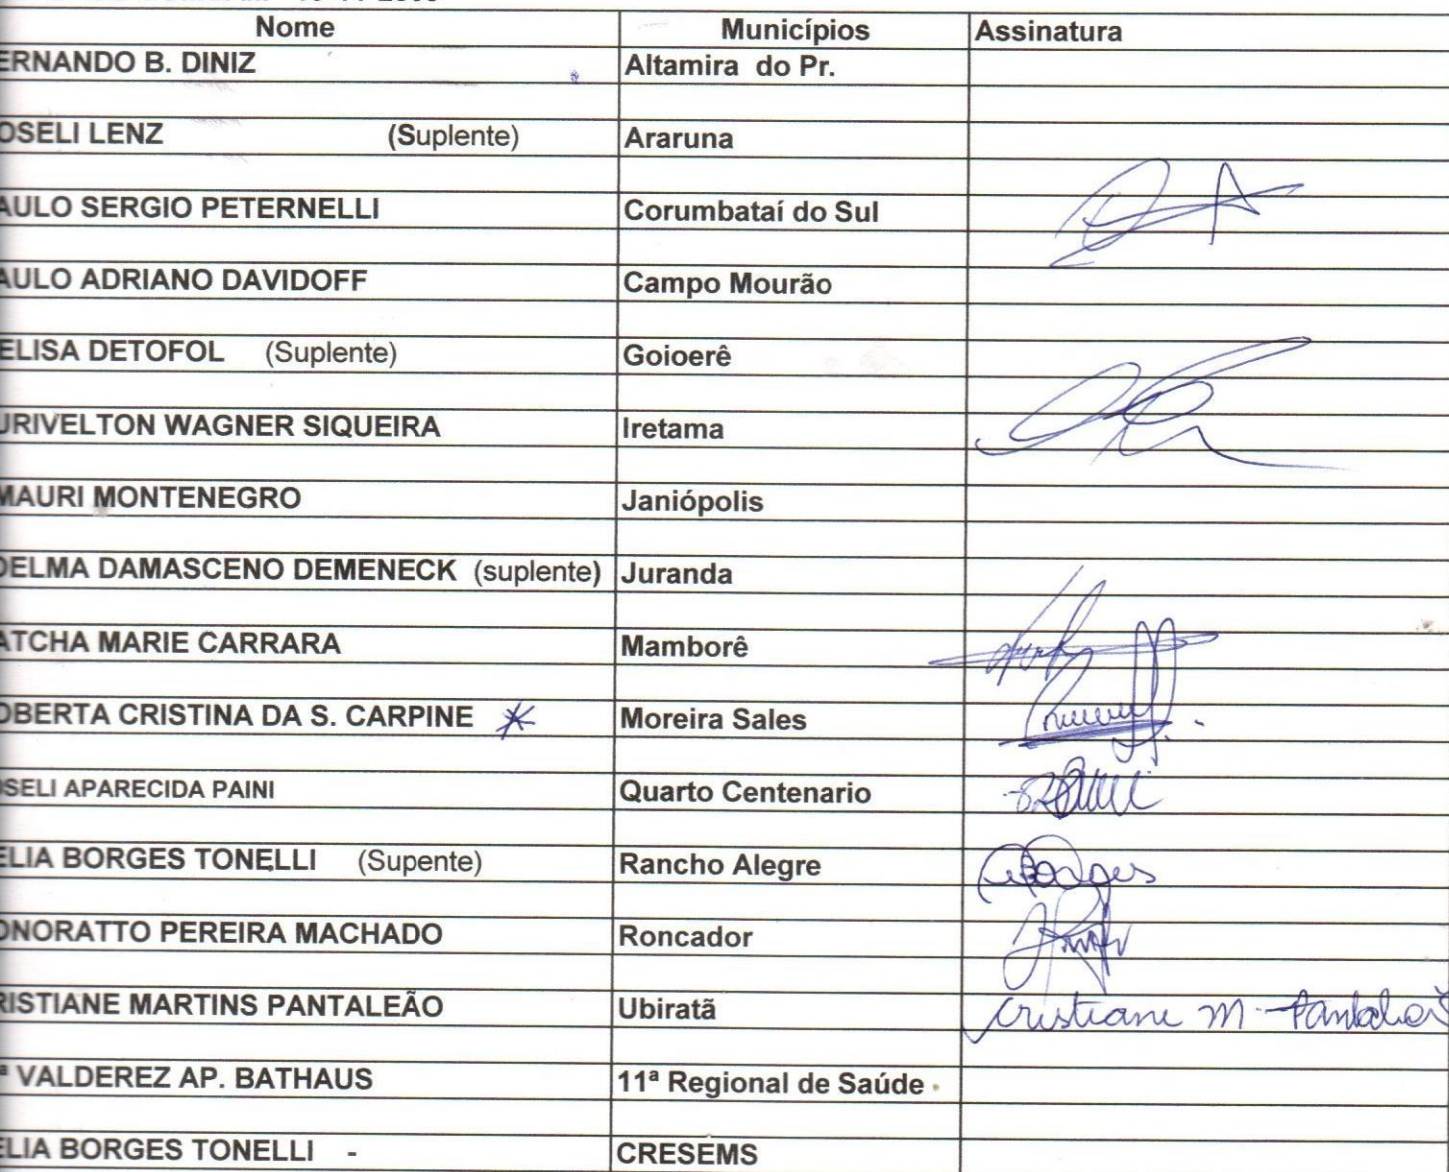 Nome Municípios Assinatura
ERNANDO B. DINIZ Altamira do Pr.
OSELI LENZ (Suplente) Araruna
AULO SERGIO PETERNELLI Corumbataí do Sul
AULO ADRIANO DAVIDOFF Campo Mourão
ELISA DETOFOL (Suplente) Goioerê
URIVELTON WAGNER SIQUEIRA Iretama
MAURI MONTENEGRO Janiópolis
DELMA DAMASCENO DEMENECK (suplente) Juranda
ATCHA MARIE CARRARA Mamborê
OBERTA CRISTINA DA S. CARPINE * Moreira Sales
OSELI APARECIDA PAINI Quarto Centenario
ELIA BORGES TONELLI (Supente) Rancho Alegre Borges
ONORATTO PEREIRA MACHADO Roncador
RISTIANE MARTINS PANTALEÃO Ubiratã Cristiane M. Pantaleão
ª VALDEREZ AP. BATHAUS 11ª Regional de Saúde
ELIA BORGES TONELLI - CRESEMS